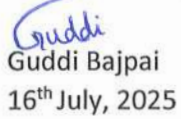 Guddi
Guddi Bajpai
16th July, 2025